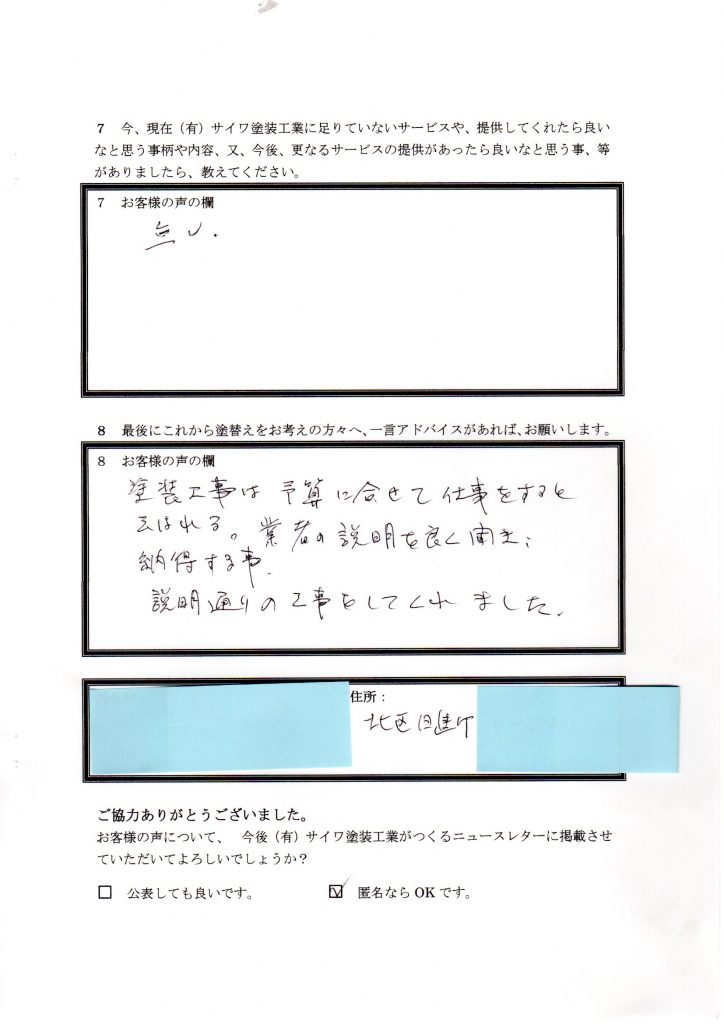 7 今、現在（有）サイワ塗装工業に足りていないサービスや、提供してくれたら良い
なと思う事柄や内容、又、今後、更なるサービスの提供があったら良いなと思う事、等
がありましたら、教えてください。
7 お客様の声の欄
無し.
8 最後にこれから塗替えをお考えの方々へ、一言アドバイスがあれば、お願いします。
8 お客様の声の欄
塗装工事は予算に合せて仕事をすると
云はれる。業者の説明を良く聞き、
納得する事.
説明通りの工事をしてくれました.
住所：
北区日進町
ご協力ありがとうございました。
お客様の声について、 今後（有）サイワ塗装工業がつくるニュースレターに掲載させ
ていただいてよろしいでしょうか？
□ 公表しても良いです。 ☑ 匿名なら OK です。